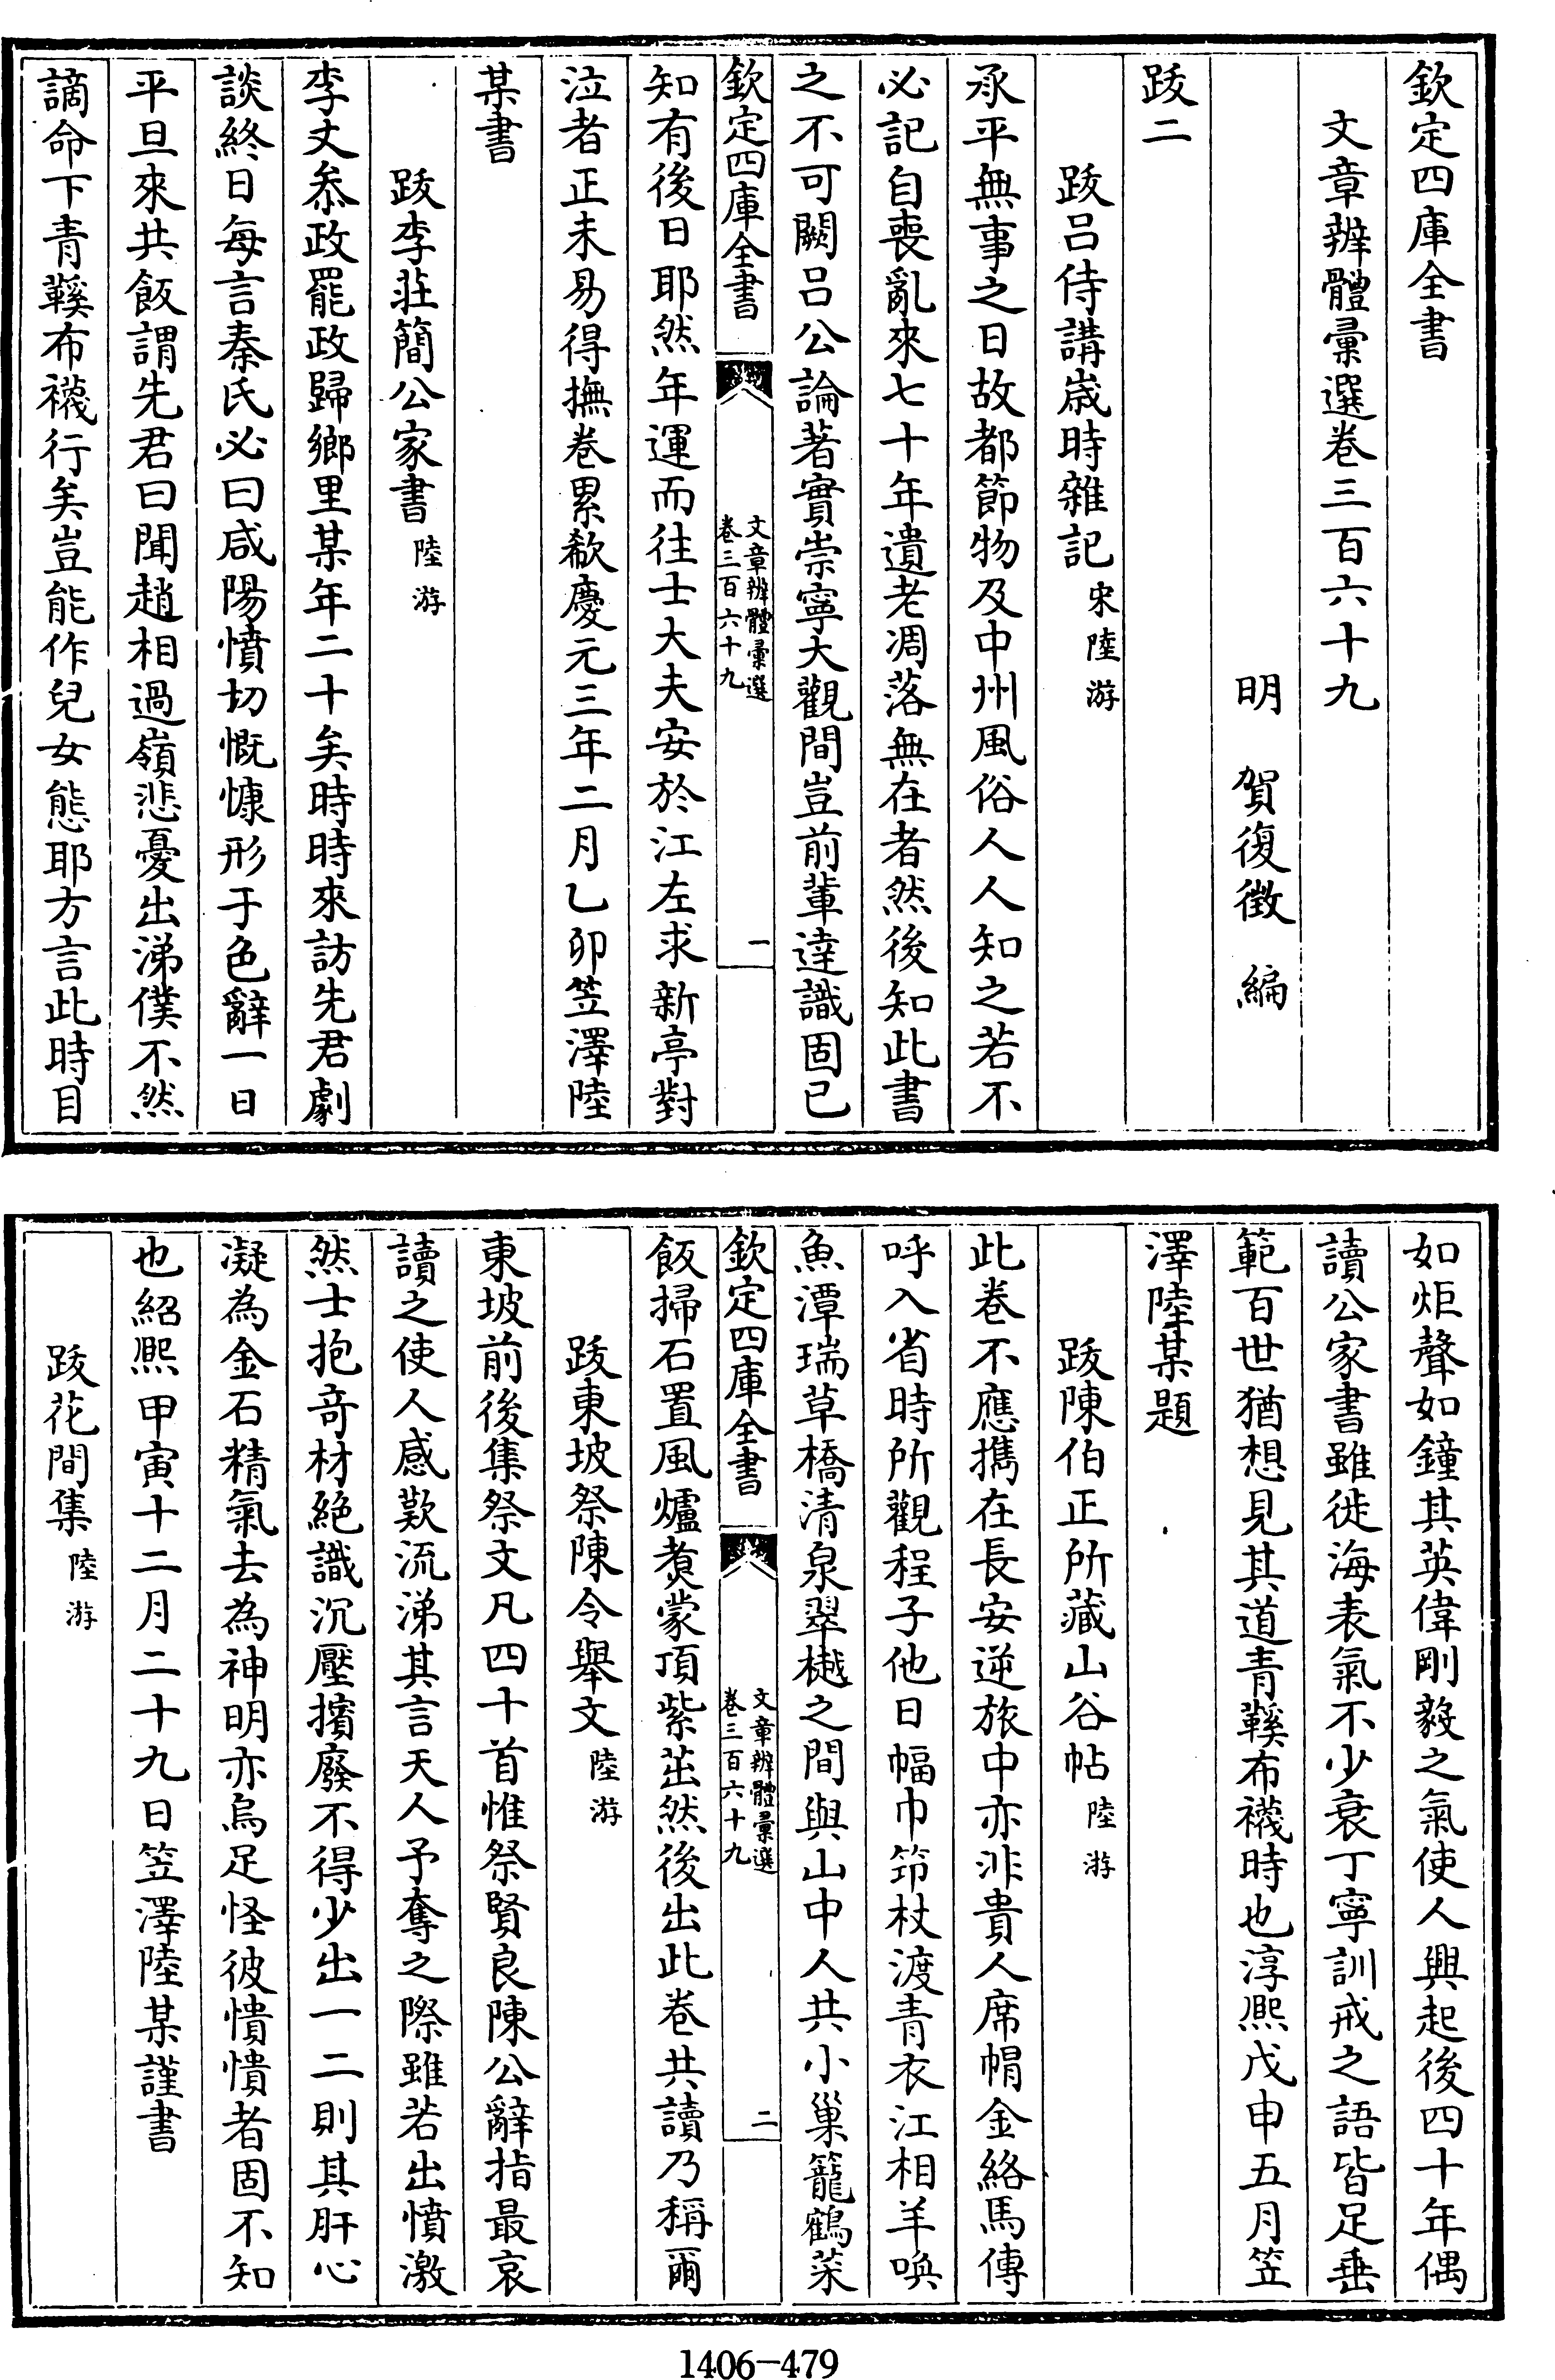 欽定四庫全書
文章辨體彙選卷三百六十九
明 賀復徵 編
跋二
跋呂侍講歲時雜記宋陸游
承平無事之日故都節物及中州風俗人人知之若不
必記自喪亂來七十年遺老凋落無在者然後知此書
之不可闕呂公論著實崇寧大觀間豈前輩達識固已
欽定四庫全書
文章辨體彙選
卷三百六十九
一
知有後日耶然年運而往士大夫安於江左求新亭對
泣者正未易得撫卷累欷慶元三年二月乙卯笠澤陸
某書
跋李莊簡公家書陸游
李丈叅政罷政歸鄉里某年二十矣時時來訪先君劇
談終日每言秦氏必曰咸陽憤切慨慷形于色辭一日
平旦來共飯謂先君曰聞趙相過嶺悲憂出涕僕不然
謫命下青鞵布襪行矣豈能作兒女態耶方言此時目
如炬聲如鐘其英偉剛毅之氣使人興起後四十年偶
讀公家書雖徙海表氣不少衰丁寧訓戒之語皆足垂
範百世猶想見其道青鞵布襪時也淳熙戊申五月笠
澤陸某題
跋陳伯正所藏山谷帖陸游
此卷不應攜在長安逆旅中亦非貴人席帽金絡馬傳
呼入省時所觀程子他日幅巾笻杖渡青衣江相羊喚
魚潭瑞草橋清泉翠樾之間與山中人共小巢龍鶴菜
欽定四庫全書
文章辨體彙選
卷三百六十九
二
飯掃石置風爐煑蒙頂紫茁然後出此卷共讀乃稱爾
跋東坡祭陳令舉文陸游
東坡前後集祭文凡四十首惟祭賢良陳公辭指最哀
讀之使人感歎流涕其言天人予奪之際雖若出憤激
然士抱奇材絕識沉壓擯廢不得少出一二則其肝心
凝為金石精氣去為神明亦烏足怪彼憒憒者固不知
也紹熙甲寅十二月二十九日笠澤陸某謹書
跋花間集陸游
1406-479